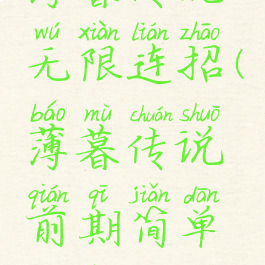 wú xiàn lián zhāo
无限连招(
báo mù chuán shuō
薄暮传说
qián qī jiǎn dān
前期简单